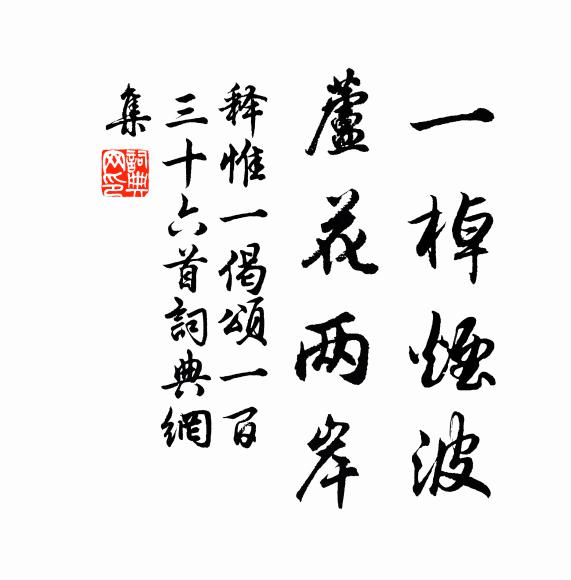 一棹煙波
蘆花两岸
释惟一偈頌一百
三十六首詞典網
集
詞典网印